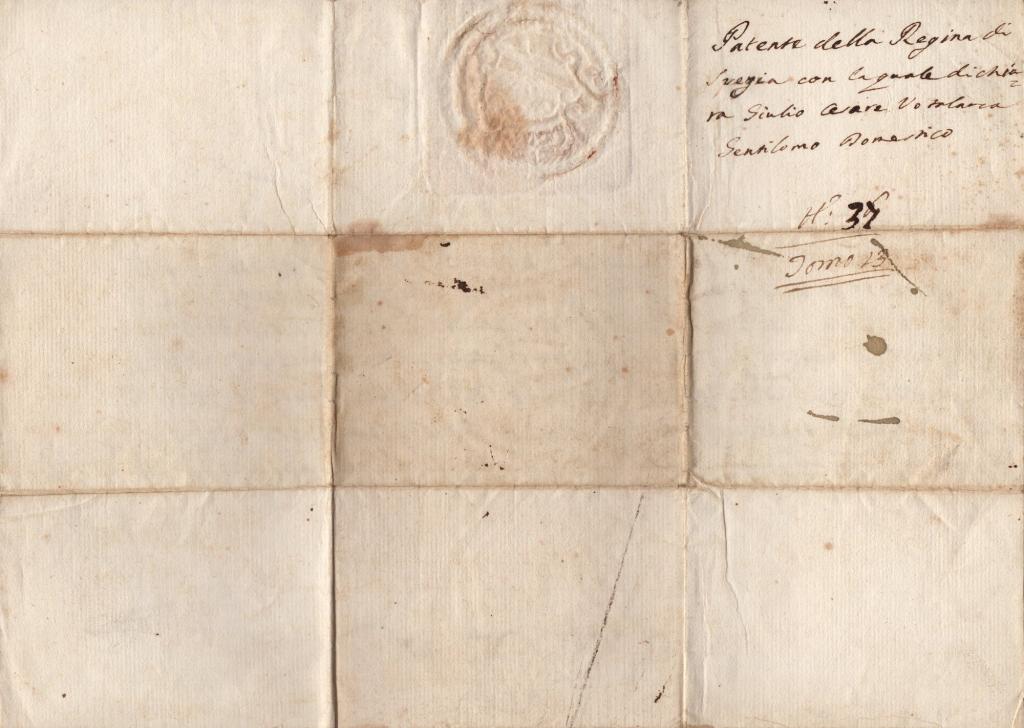 Patente della Regina di
Svezia con la quale dichia=
ra Giulio Cesare Votalarca
Gentilomo Domestico
N.º 37
Tomo 13